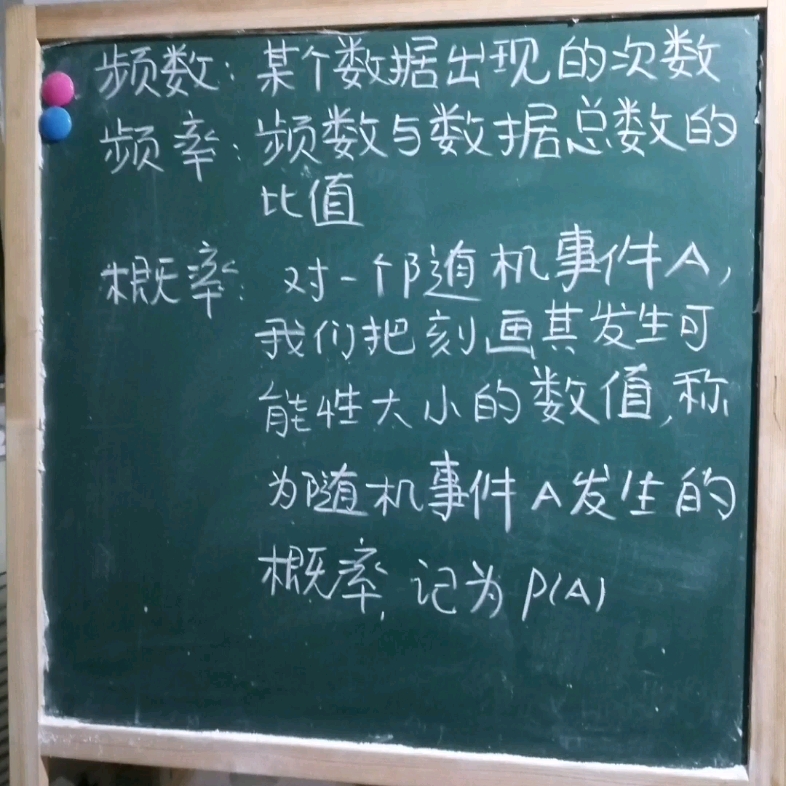 频数：某个数据出现的次数
频率：频数与数据总数的
比值
概率：对一个随机事件A，
我们把刻画其发生可
能性大小的数值，称
为随机事件A发生的
概率，记为P(A)